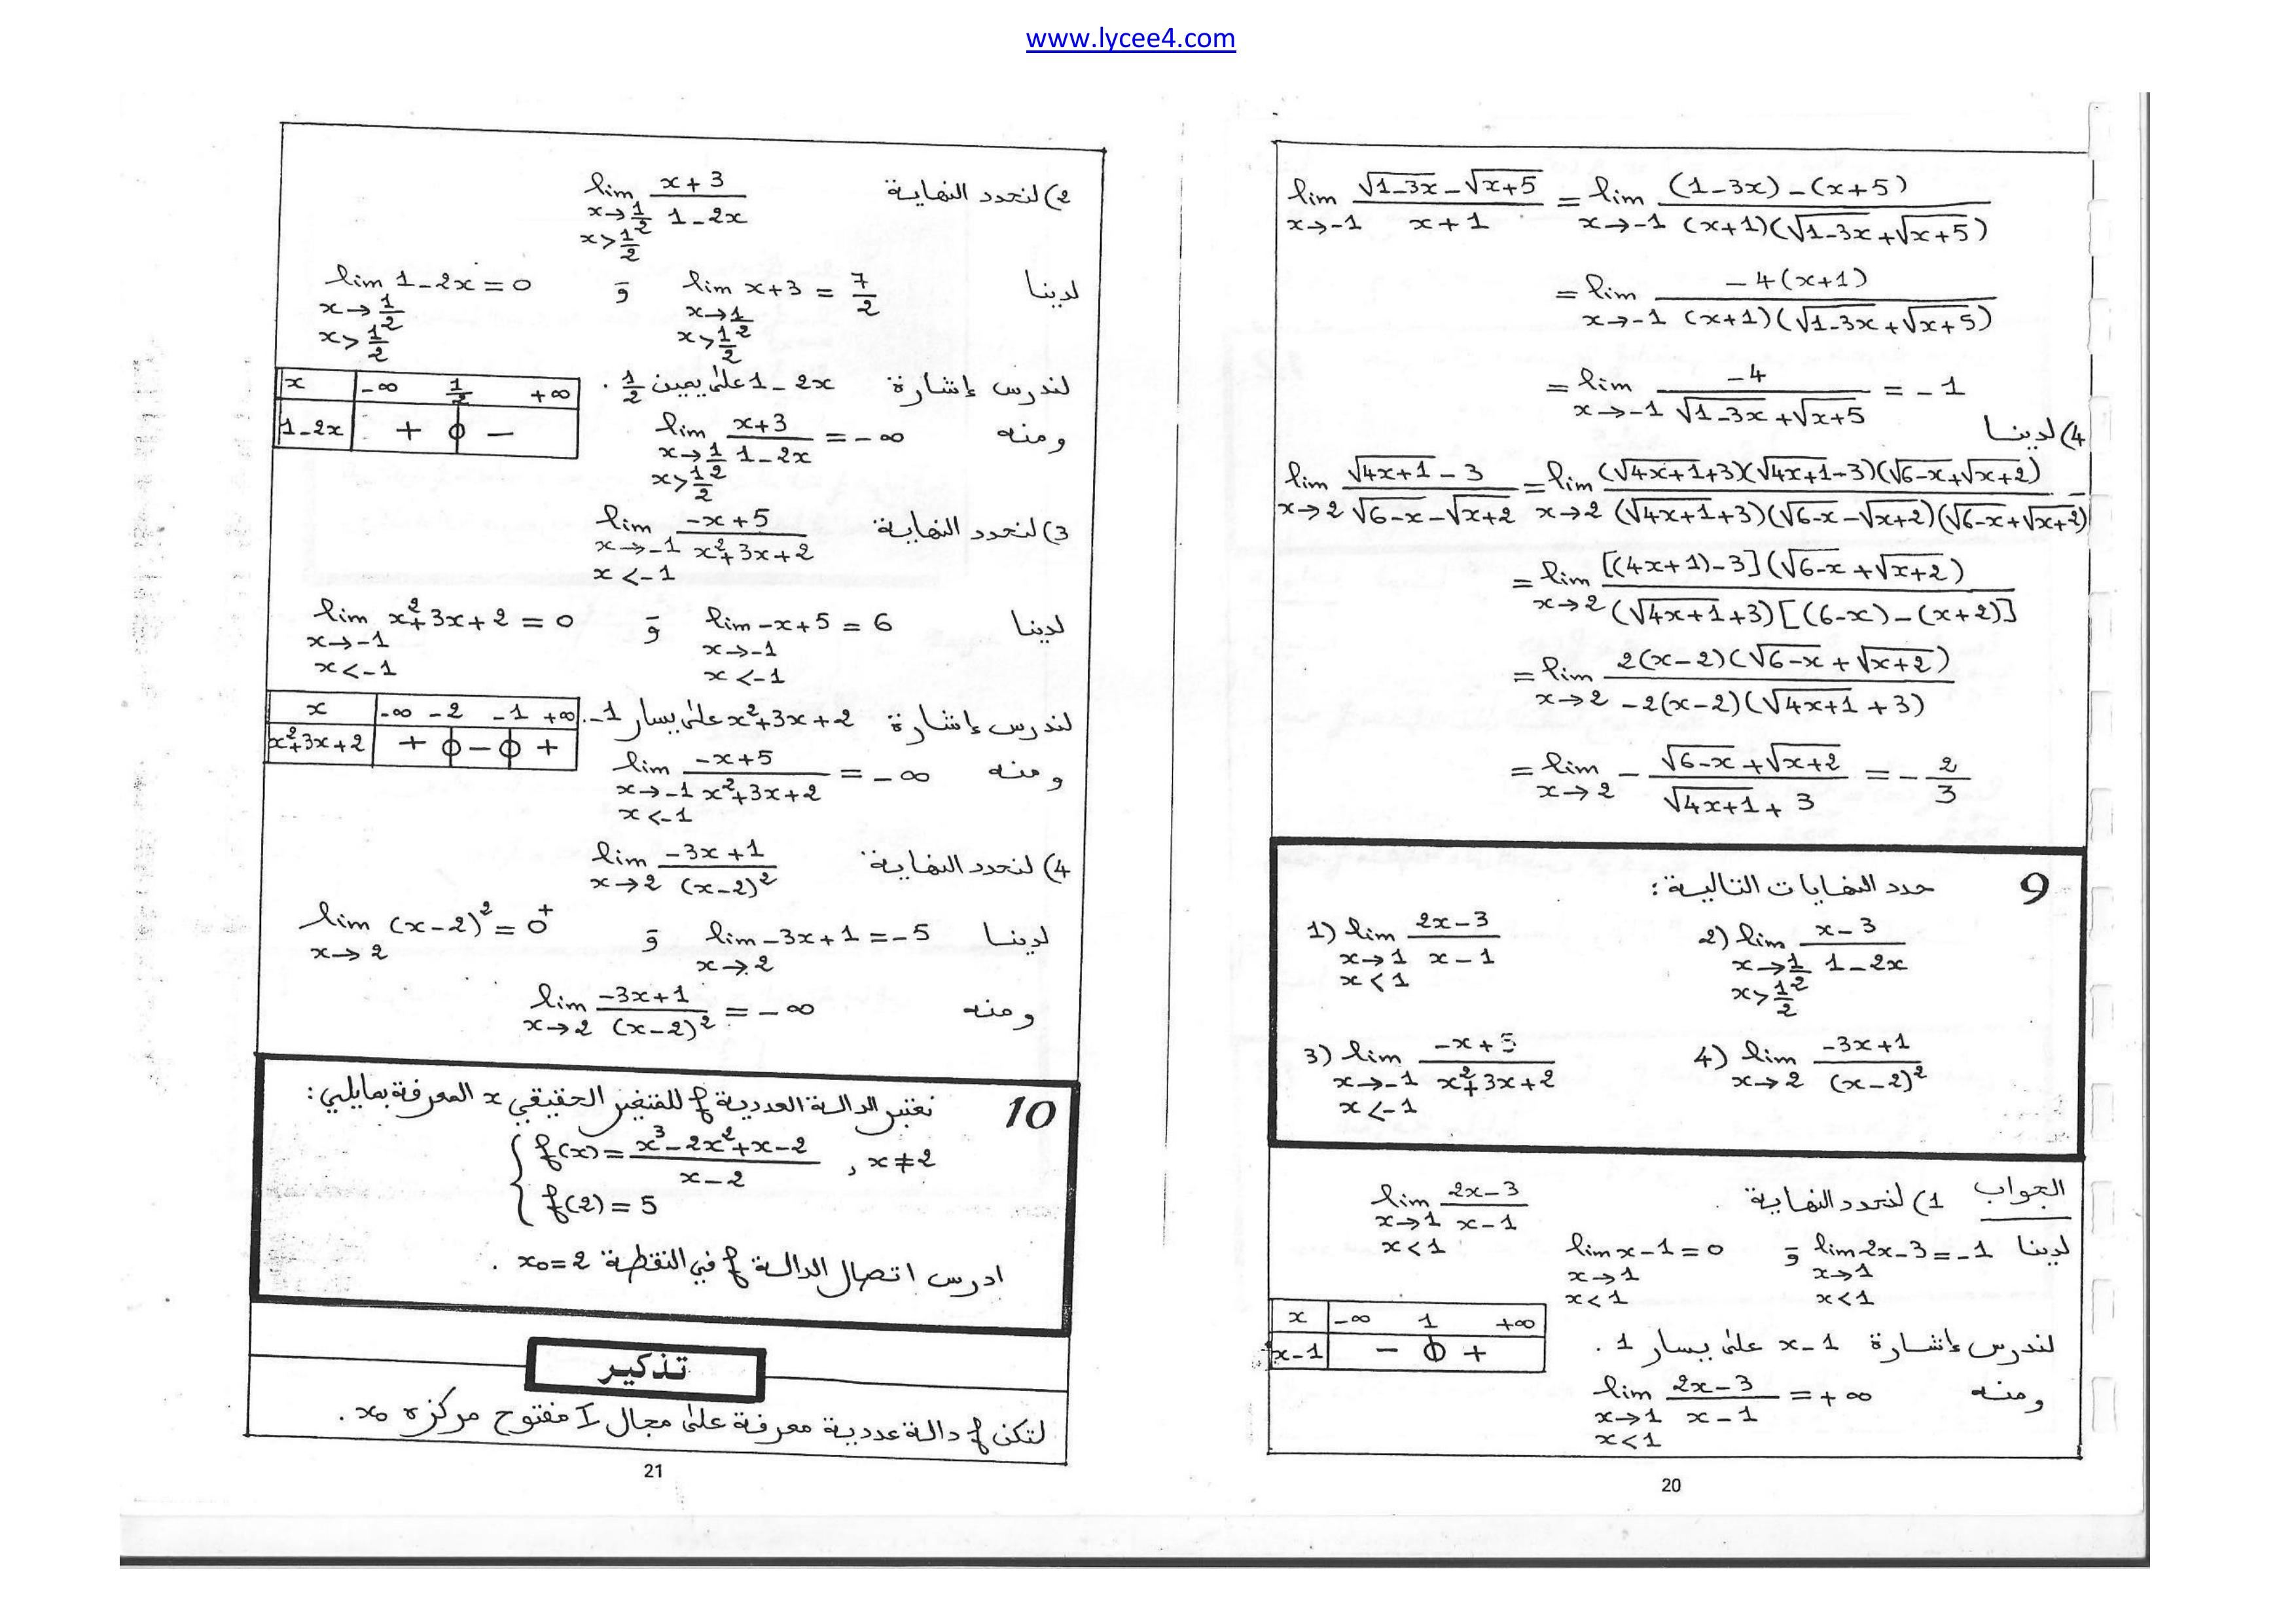 www.lycee4.com
lim x→-1 (√(1-3x) - √(x+5)) / (x+1) = lim x→-1 ((1-3x) - (x+5)) / ((x+1)(√(1-3x) + √(x+5)))
= lim x→-1 (-4(x+1)) / ((x+1)(√(1-3x) + √(x+5)))
= lim x→-1 (-4) / (√(1-3x) + √(x+5)) = -1
4) لدينا
lim x→2 (√(4x+1) - 3) / (√(6-x) - √(x+2)) = lim x→2 ((√(4x+1)+3)(√(4x+1)-3)(√(6-x)+√(x+2))) / ((√(4x+1)+3)(√(6-x)-√(x+2))(√(6-x)+√(x+2)))
= lim x→2 ([(4x+1)-3](√(6-x) + √(x+2))) / ((√(4x+1)+3)[(6-x)-(x+2)])
= lim x→2 (2(x-2)(√(6-x) + √(x+2))) / (-2(x-2)(√(4x+1) + 3))
= lim x→2 - (√(6-x) + √(x+2)) / (√(4x+1) + 3) = - 2/3
9 حدد النهايات التالية:
1) lim x→1 x<1 (2x-3)/(x-1) 2) lim x→1/2 x>1/2 (x-3)/(1-2x)
3) lim x→-1 x<-1 (-x+5)/(x²+3x+2) 4) lim x→2 (-3x+1)/(x-2)²
الجواب 1) لنحدد النهاية lim x→1 x<1 (2x-3)/(x-1)
لدينا lim x→1 x<1 2x-3 = -1 وَ lim x→1 x<1 x-1 = 0
لندرس إشارة x-1 على يسار 1.
x -∞ 1 +∞
x-1 - 0 +
ومنه lim x→1 x<1 (2x-3)/(x-1) = +∞
20
2) لنحدد النهاية lim x→1/2 x>1/2 (x+3)/(1-2x)
لدينا lim x→1/2 x>1/2 x+3 = 7/2 وَ lim x→1/2 x>1/2 1-2x = 0
لندرس إشارة 1-2x على يمين 1/2.
x -∞ 1/2 +∞
1-2x + 0 -
ومنه lim x→1/2 x>1/2 (x+3)/(1-2x) = -∞
3) لنحدد النهاية lim x→-1 x<-1 (-x+5)/(x²+3x+2)
لدينا lim x→-1 x<-1 -x+5 = 6 وَ lim x→-1 x<-1 x²+3x+2 = 0
لندرس إشارة x²+3x+2 على يسار -1.
x -∞ -2 -1 +∞
x²+3x+2 + 0 - 0 +
ومنه lim x→-1 x<-1 (-x+5)/(x²+3x+2) = -∞
4) لنحدد النهاية lim x→2 (-3x+1)/(x-2)²
لدينا lim x→2 -3x+1 = -5 وَ lim x→2 (x-2)² = 0⁺
ومنه lim x→2 (-3x+1)/(x-2)² = -∞
10 نعتبر الدالة العددية f للمتغير الحقيقي x المعرفة بمايلي:
f(x) = (x³-2x²+x-2)/(x-2) , x≠2
f(2) = 5
ادرس اتصال الدالة f في النقطة x₀=2.
تذكير
لتكن f دالة عددية معرفة على مجال I مفتوح مركزه x₀.
21